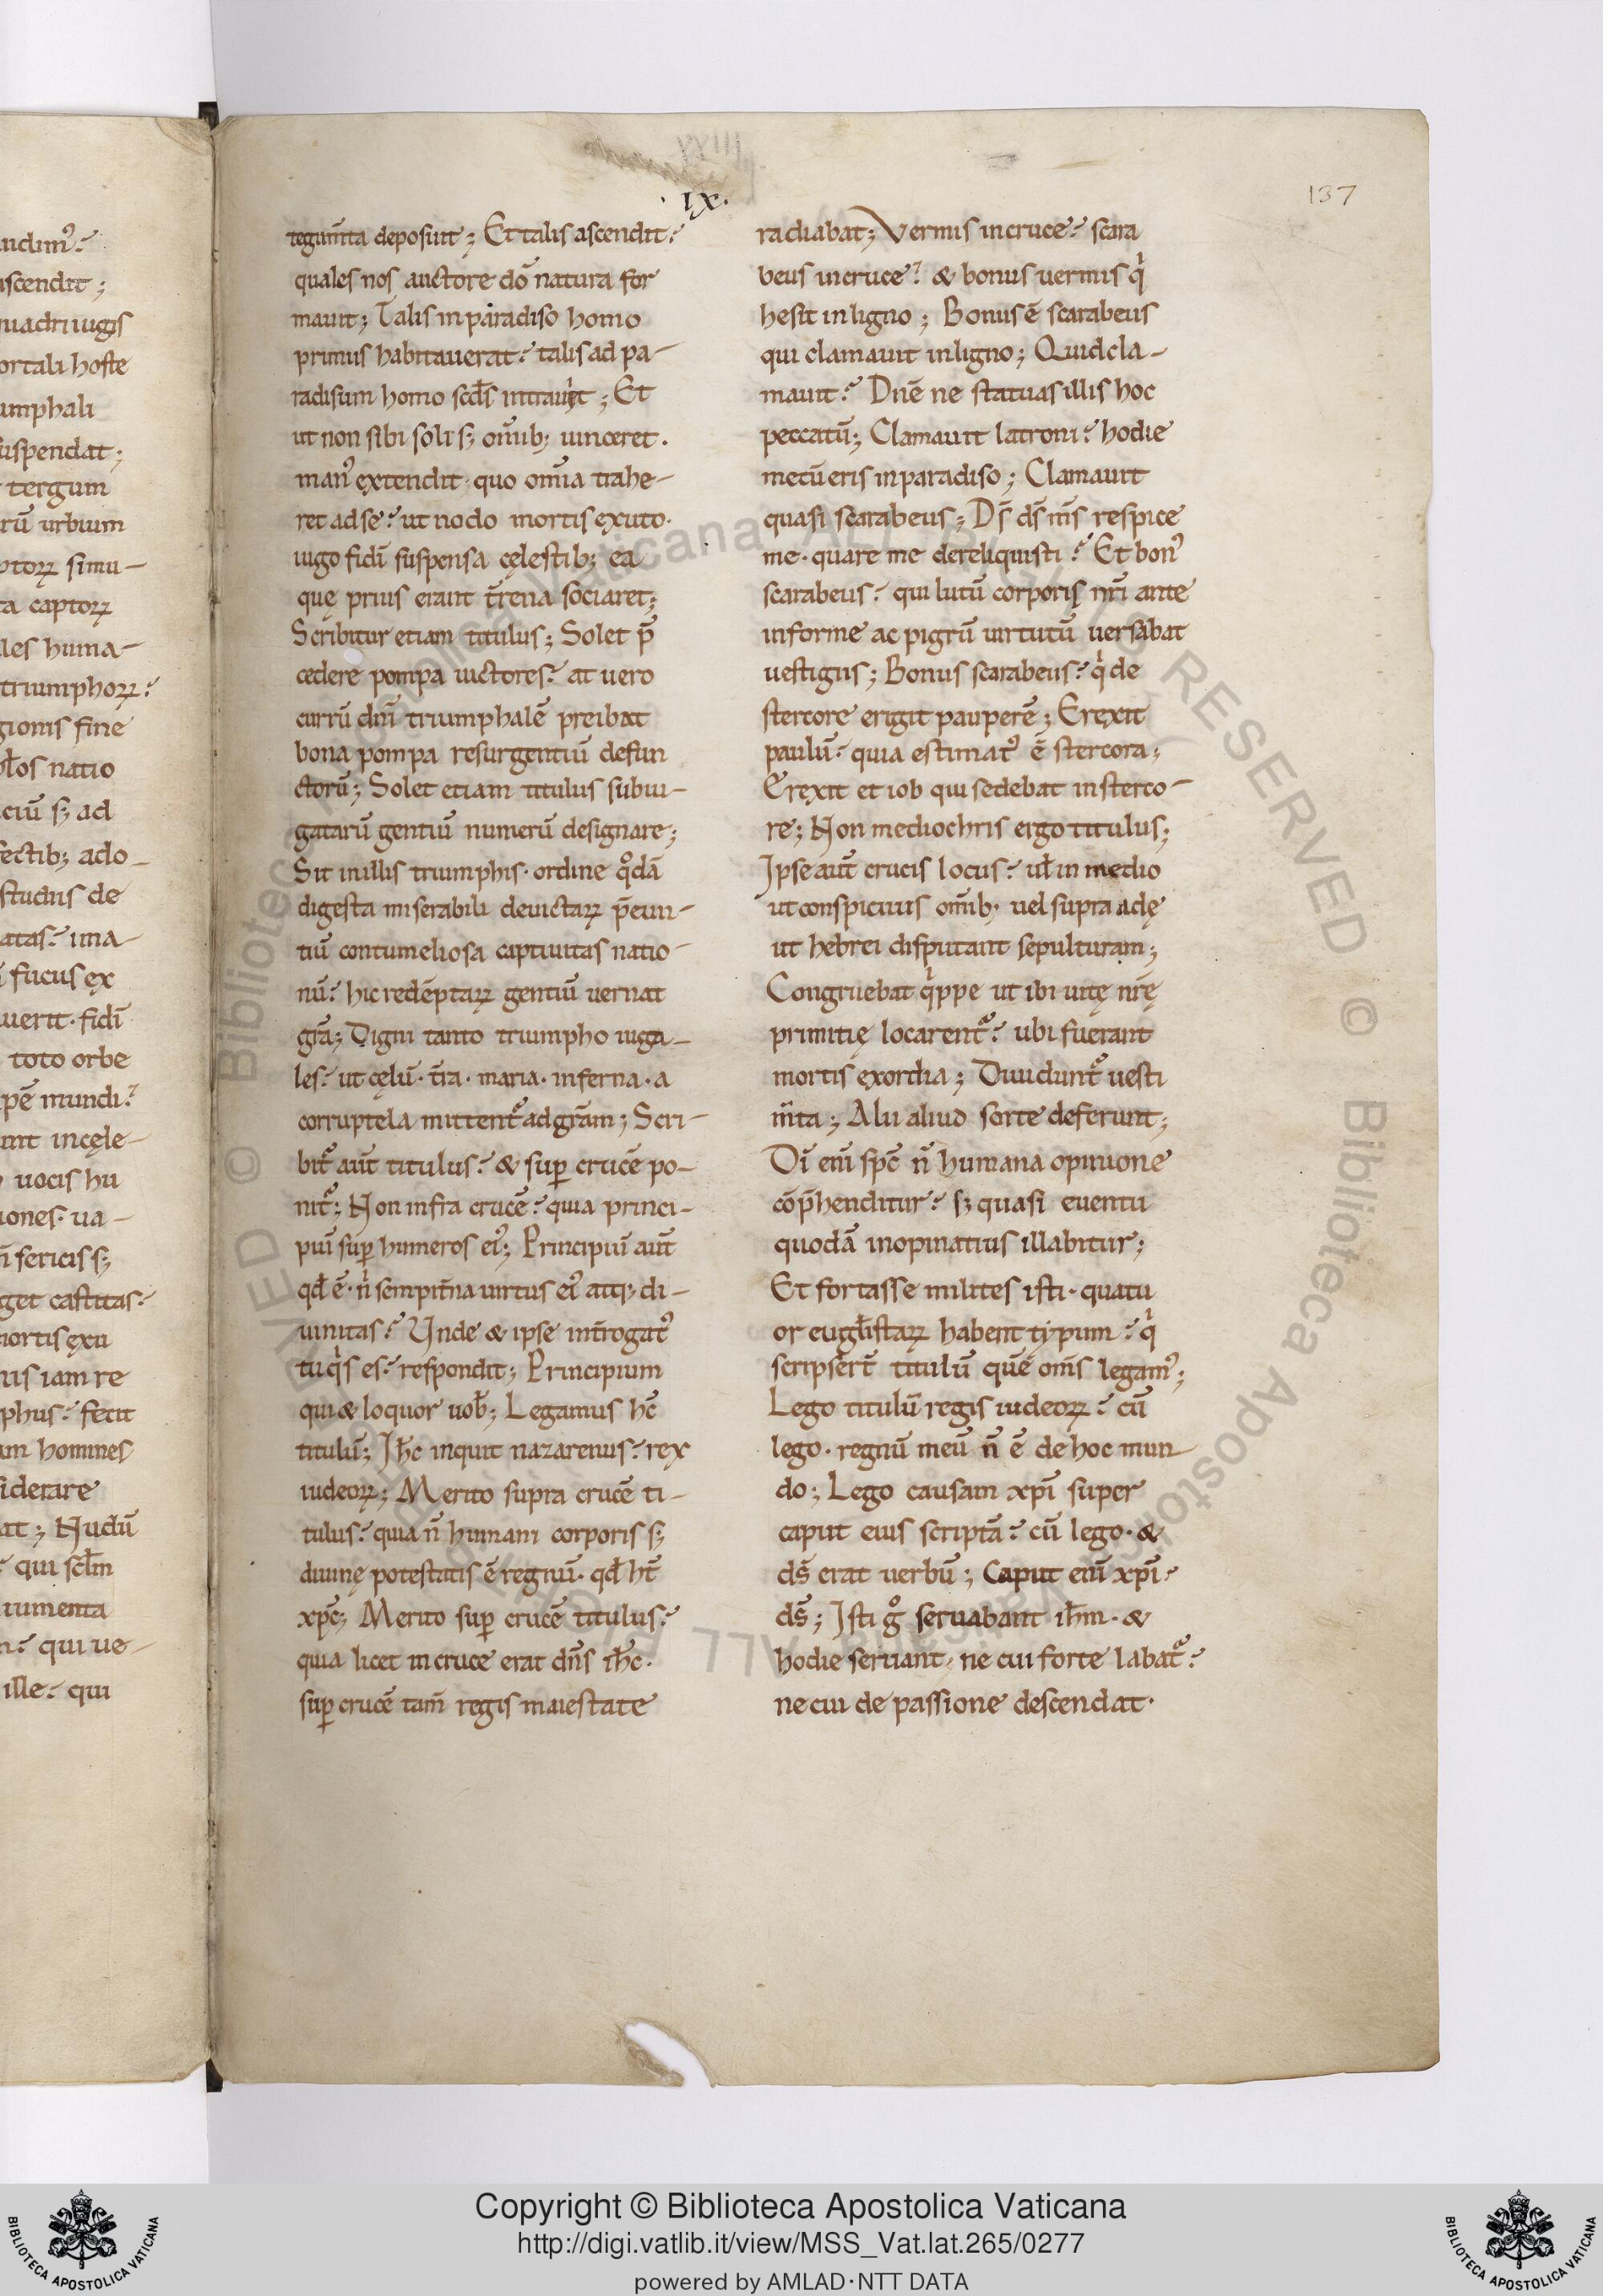 udim᷒?
ascendit;
quadriiugis
ortali hoste
umphali
suspendat;
tergum
rū urbium
ptoꝝ simu-
ta captoꝝ
les huma-
triumphoꝝ?
gionis fine
natio
ciū s; ad
fectib; ado-
studiis de
atas? ima-
fucus ex
uerit. fidī
toto orbe
pē mundi?
unt incęle-
uocis hu
iones. ua-
sericis s;
get castitas?
mortis exu
uis iam re
phus? fecit
um homines
siderare
at; Nudū
qui scl̄m
iumenta
qui ue-
ille? qui
XXIII
.IX.
137
tegum̄ta deposuit; Et talis ascendit?
quales nos auctore dō natura for
mauit; Talis in paradiso homo
primus habitauerat? talis ad pa-
radisum homo scd̄s intrauit; Et
ut non sibi soli s; om̄ib; uinceret.
man᷒ extendit. quo om̄ia trahe-
ret ad se? ut nodo mortis exuto.
iugo fidī suspensa cęlestib; ea
quę prius erant t̄rena sociaret;
Scribitur etiam titulus; Solet p̄
cedere pompa uictores? at uero
currū dnī triumphalē preibat
bona pompa resurgentiū defun
ctorū; Solet etiam titulus subiu-
gatarū gentiū numerū designare;
Sit in illis triumphis. ordine qͦdā
digesta miserabili deuictaꝝ p̄eun-
tiū contumeliosa captiuitas natio-
nū? hic redēptaꝝ gentiū uernat
gr̄a; Digni tanto triumpho iuga-
les? ut cęlū. t̄ra. maria. inferna. a
corruptela mittent᷑ ad gr̄am; Scri-
bit᷑ aut̄ titulus? & suꝑ crucē po-
nit᷑; Non infra crucē? quia princi-
piū suꝑ humeros ei᷒; Principiū aut̄
qd̄ ē. n̍ sempit̄na uirtus ei᷒ atq; di-
uinitas? Unde & ipse int̄rogat᷒
tu qͥs es? respondit; Principium
qui & loquor uob̄; Legamus hc̄
titulū; Ih̄c inquit nazarenus? rex
iudeoꝝ; Merito supra crucē ti-
tulus? quia n̄ humani corporis s;
diuinę potestatis ē regnū. qd̄ ht̄
xp̄c; Merito suꝑ crucē titulus?
quia licet in cruce erat dn̄s ih̄c.
suꝑ crucē tam̄ regis maiestate
radiabat; Vermis in cruce? scara
beus in cruce? & bonus uermis qͥ
hesit in ligno; Bonus ē scarabeus
qui clamauit in ligno; Quid cla-
mauit? Dn̄e ne statuas illis hoc
peccatū; Clamauit latroni? hodie
mecū eris in paradiso; Clamauit
quasi scarabeus; Ds̄ ds̄ ms̄ respice
me. quare me dereliquisti? Et bon᷒
scarabeus? qui lutū corporis nr̄i ante
informe ac pigrū uirtutū uersabat
uestigiis; Bonus scarabeus? qͥ de
stercore erigit pauperē; Erexit
paulū. quia estimat᷒ ē stercora;
Erexit et iob qui sedebat in sterco-
re; Non mediochris ergo titulus;
Ipse aut̄ crucis locus? ul̄ in medio
ut conspicuus om̄ib. uel supra adę
ut hebrei disputant sepulturam;
Congruebat qͥppe ut ibi uitę nr̄ę
primitię locarent᷑? ubi fuerant
mortis exordia; Diuidunt᷑ uesti
m̄ta; Alii aliud sorte deferunt;
Dī enī sp̄c n̄ humana opinione
cōp̄henditur? s; quasi euentu
quodā inopinatius illabitur;
Et fortasse milites isti. quatu
or eugl̄istaꝝ habent typum? qͥ
scripser̄t titulū quē om̄s legam᷒;
Lego titulū regis iudeoꝝ? cū
lego. regnū meū n̄ ē de hoc mun-
do; Lego causam xpī super
caput eius scriptā? cū lego. &
ds̄ erat uerbū; Caput enī xpī?
ds̄; Isti gͦ seruabant ih̄m. &
hodie seruant. ne cui forte labat᷑?
ne cui de passione descendat.
Copyright © Biblioteca Apostolica Vaticana
http://digi.vatlib.it/view/MSS_Vat.lat.265/0277
powered by AMLAD·NTT DATA
BIBLIOTECA APOSTOLICA VATICANA
BIBLIOTECA APOSTOLICA VATICANA